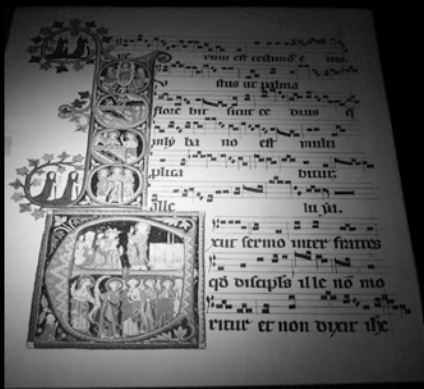 rum est testimo e ius.
stus ut palma
flore bit sicut ce drus q
in ly ba no est multi
plica bitur.
ille lu ya.
xiit sermo inter fratres
qd discipls ille no mo
ritur et non dixit ihe